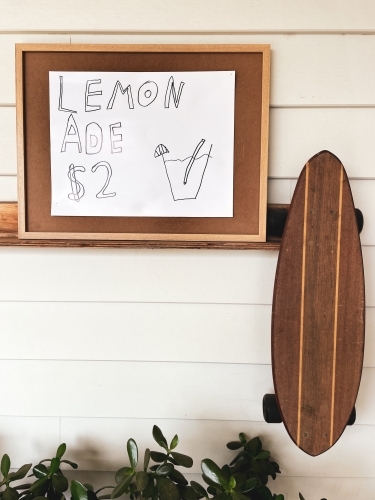 LEMON
ADE
$2